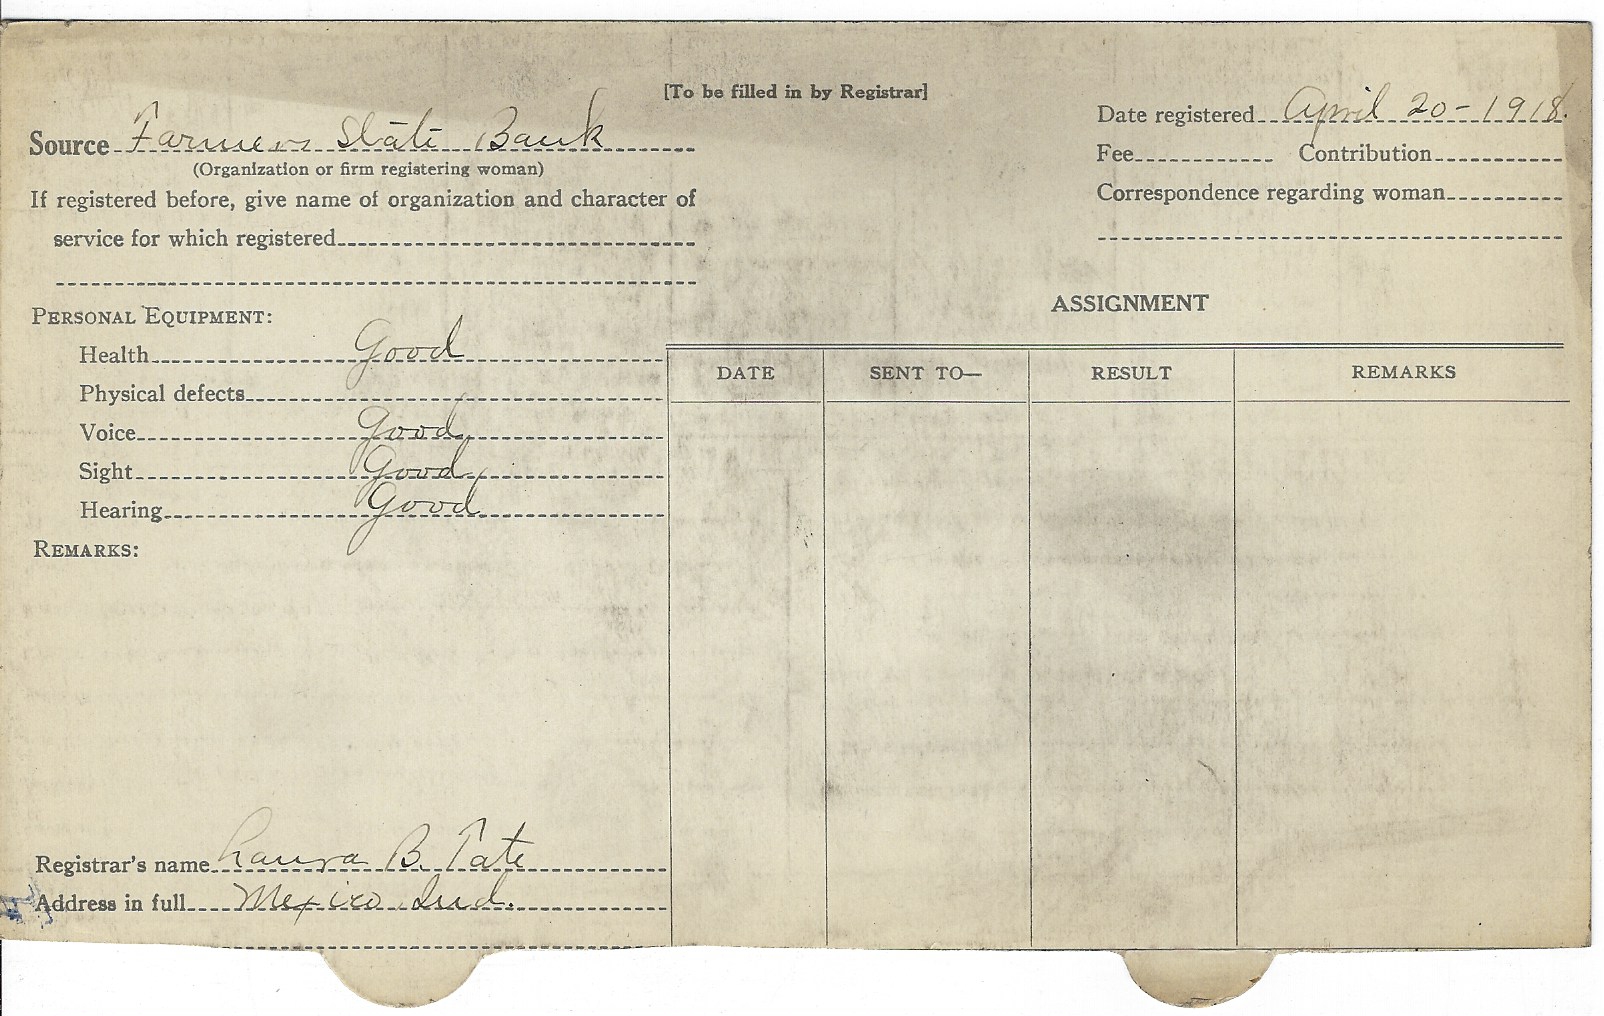 [To be filled in by Registrar]
Source Farmers State Bank
(Organization or firm registering woman)
If registered before, give name of organization and character of
service for which registered
Date registered April 20-1918.
Fee Contribution
Correspondence regarding woman
PERSONAL EQUIPMENT:
Health Good
Physical defects
Voice Good
Sight Good
Hearing Good
REMARKS:
ASSIGNMENT
DATE SENT TO— RESULT REMARKS
Registrar's name Laura B. Tate
Address in full Mexico Ind.